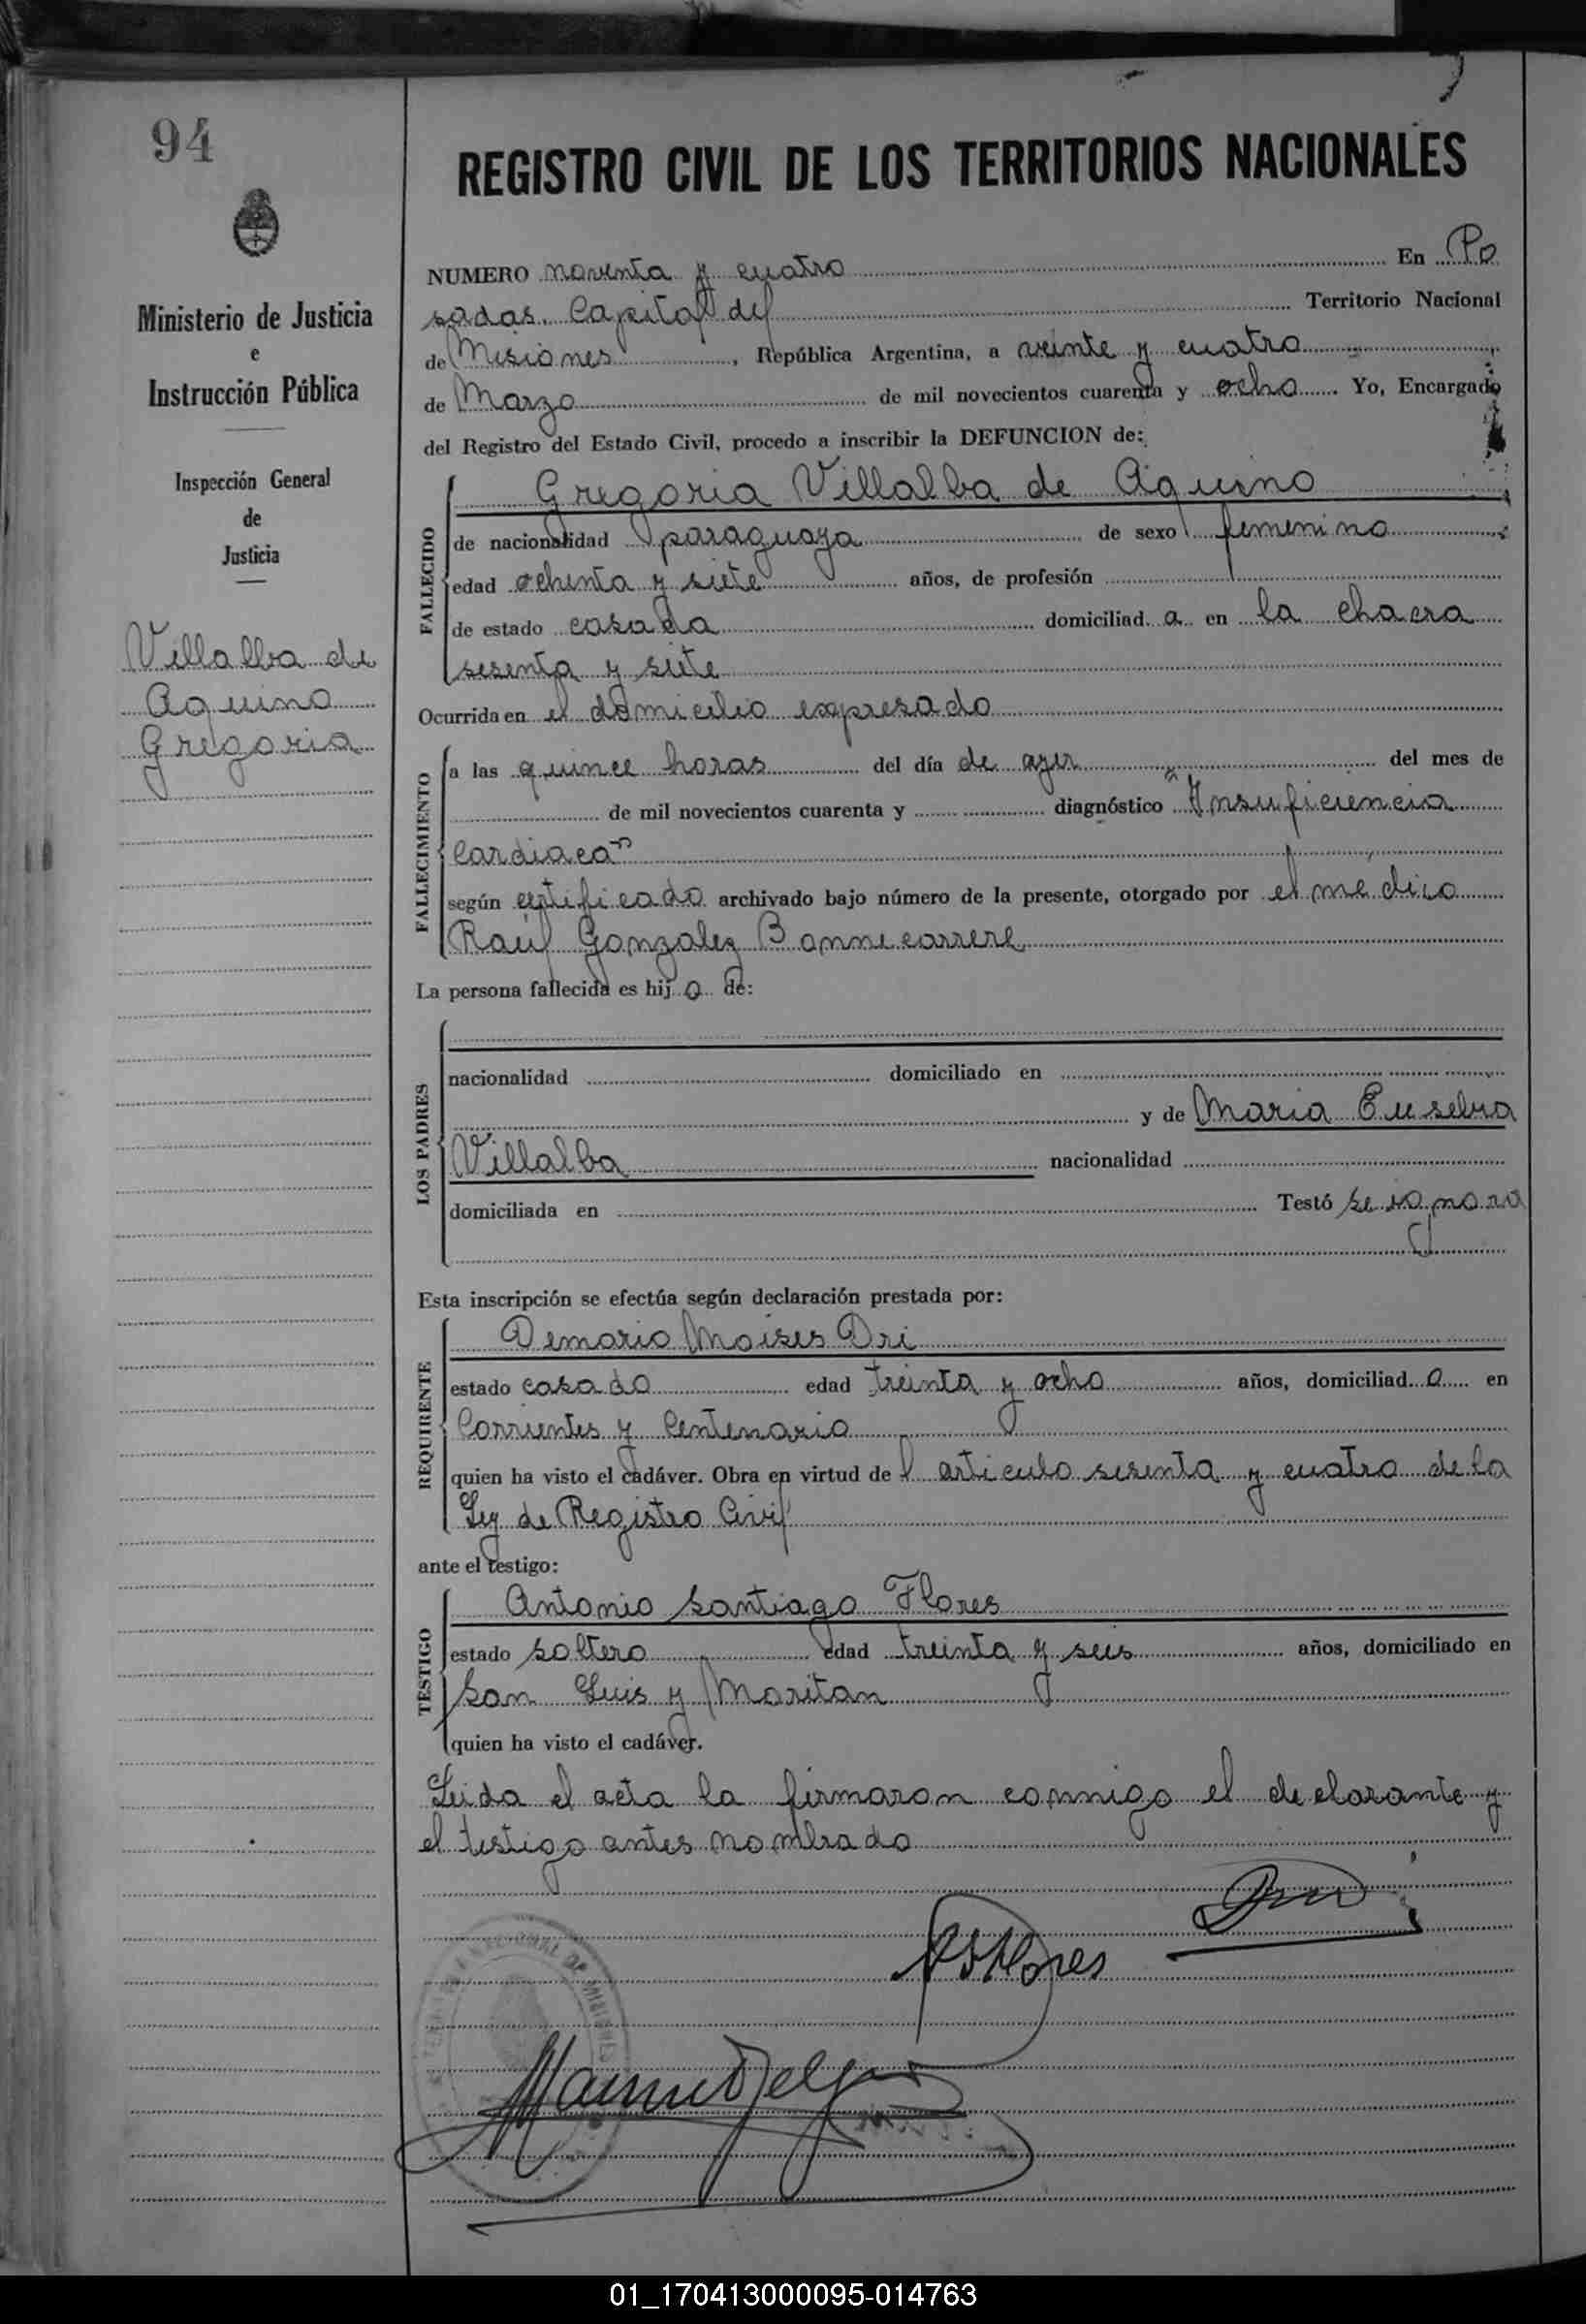 94
Ministerio de Justicia
e
Instrucción Pública
Inspección General
de
Justicia
Villalba de
Aquino
Gregoria
REGISTRO CIVIL DE LOS TERRITORIOS NACIONALES
NUMERO noventa y cuatro En Po
sadas. Capital del Territorio Nacional
de Misiones, República Argentina, a veinte y cuatro
de Marzo de mil novecientos cuarenta y ocho Yo, Encargado
del Registro del Estado Civil, procedo a inscribir la DEFUNCION de:
FALLECIDO
Gregoria Villalba de Aquino
de nacionalidad paraguaya de sexo femenino
edad ochenta y siete años, de profesión
de estado casada domiciliad a en la chacra
sesenta y siete
Ocurrida en el domicilio expresado
FALLECIMIENTO
a las quince horas del día de ayer del mes de
de mil novecientos cuarenta y diagnóstico "Insuficiencia
Cardiaca"
según certificado archivado bajo número de la presente, otorgado por el medico
Raúl Gonzalez Bonnecarrere
La persona fallecida es hij a de:
LOS PADRES
nacionalidad domiciliado en
y de Maria Eusebia
Villalba nacionalidad
domiciliada en Testó se ignora
Esta inscripción se efectúa según declaración prestada por:
REQUIRENTE
Demario Moises Dri
estado casado edad treinta y ocho años, domiciliad o en
Corrientes y Centenario
quien ha visto el cadáver. Obra en virtud de l articulo sesenta y cuatro de la
Ley de Registro Civil
ante el testigo:
TESTIGO
Antonio Santiago Flores
estado soltero edad treinta y seis años, domiciliado en
San Luis y Moritan
quien ha visto el cadáver.
Leida el acta la firmaron conmigo el declarante y
el testigo antes nombrado
Dri
ASFlores
01_170413000095-014763